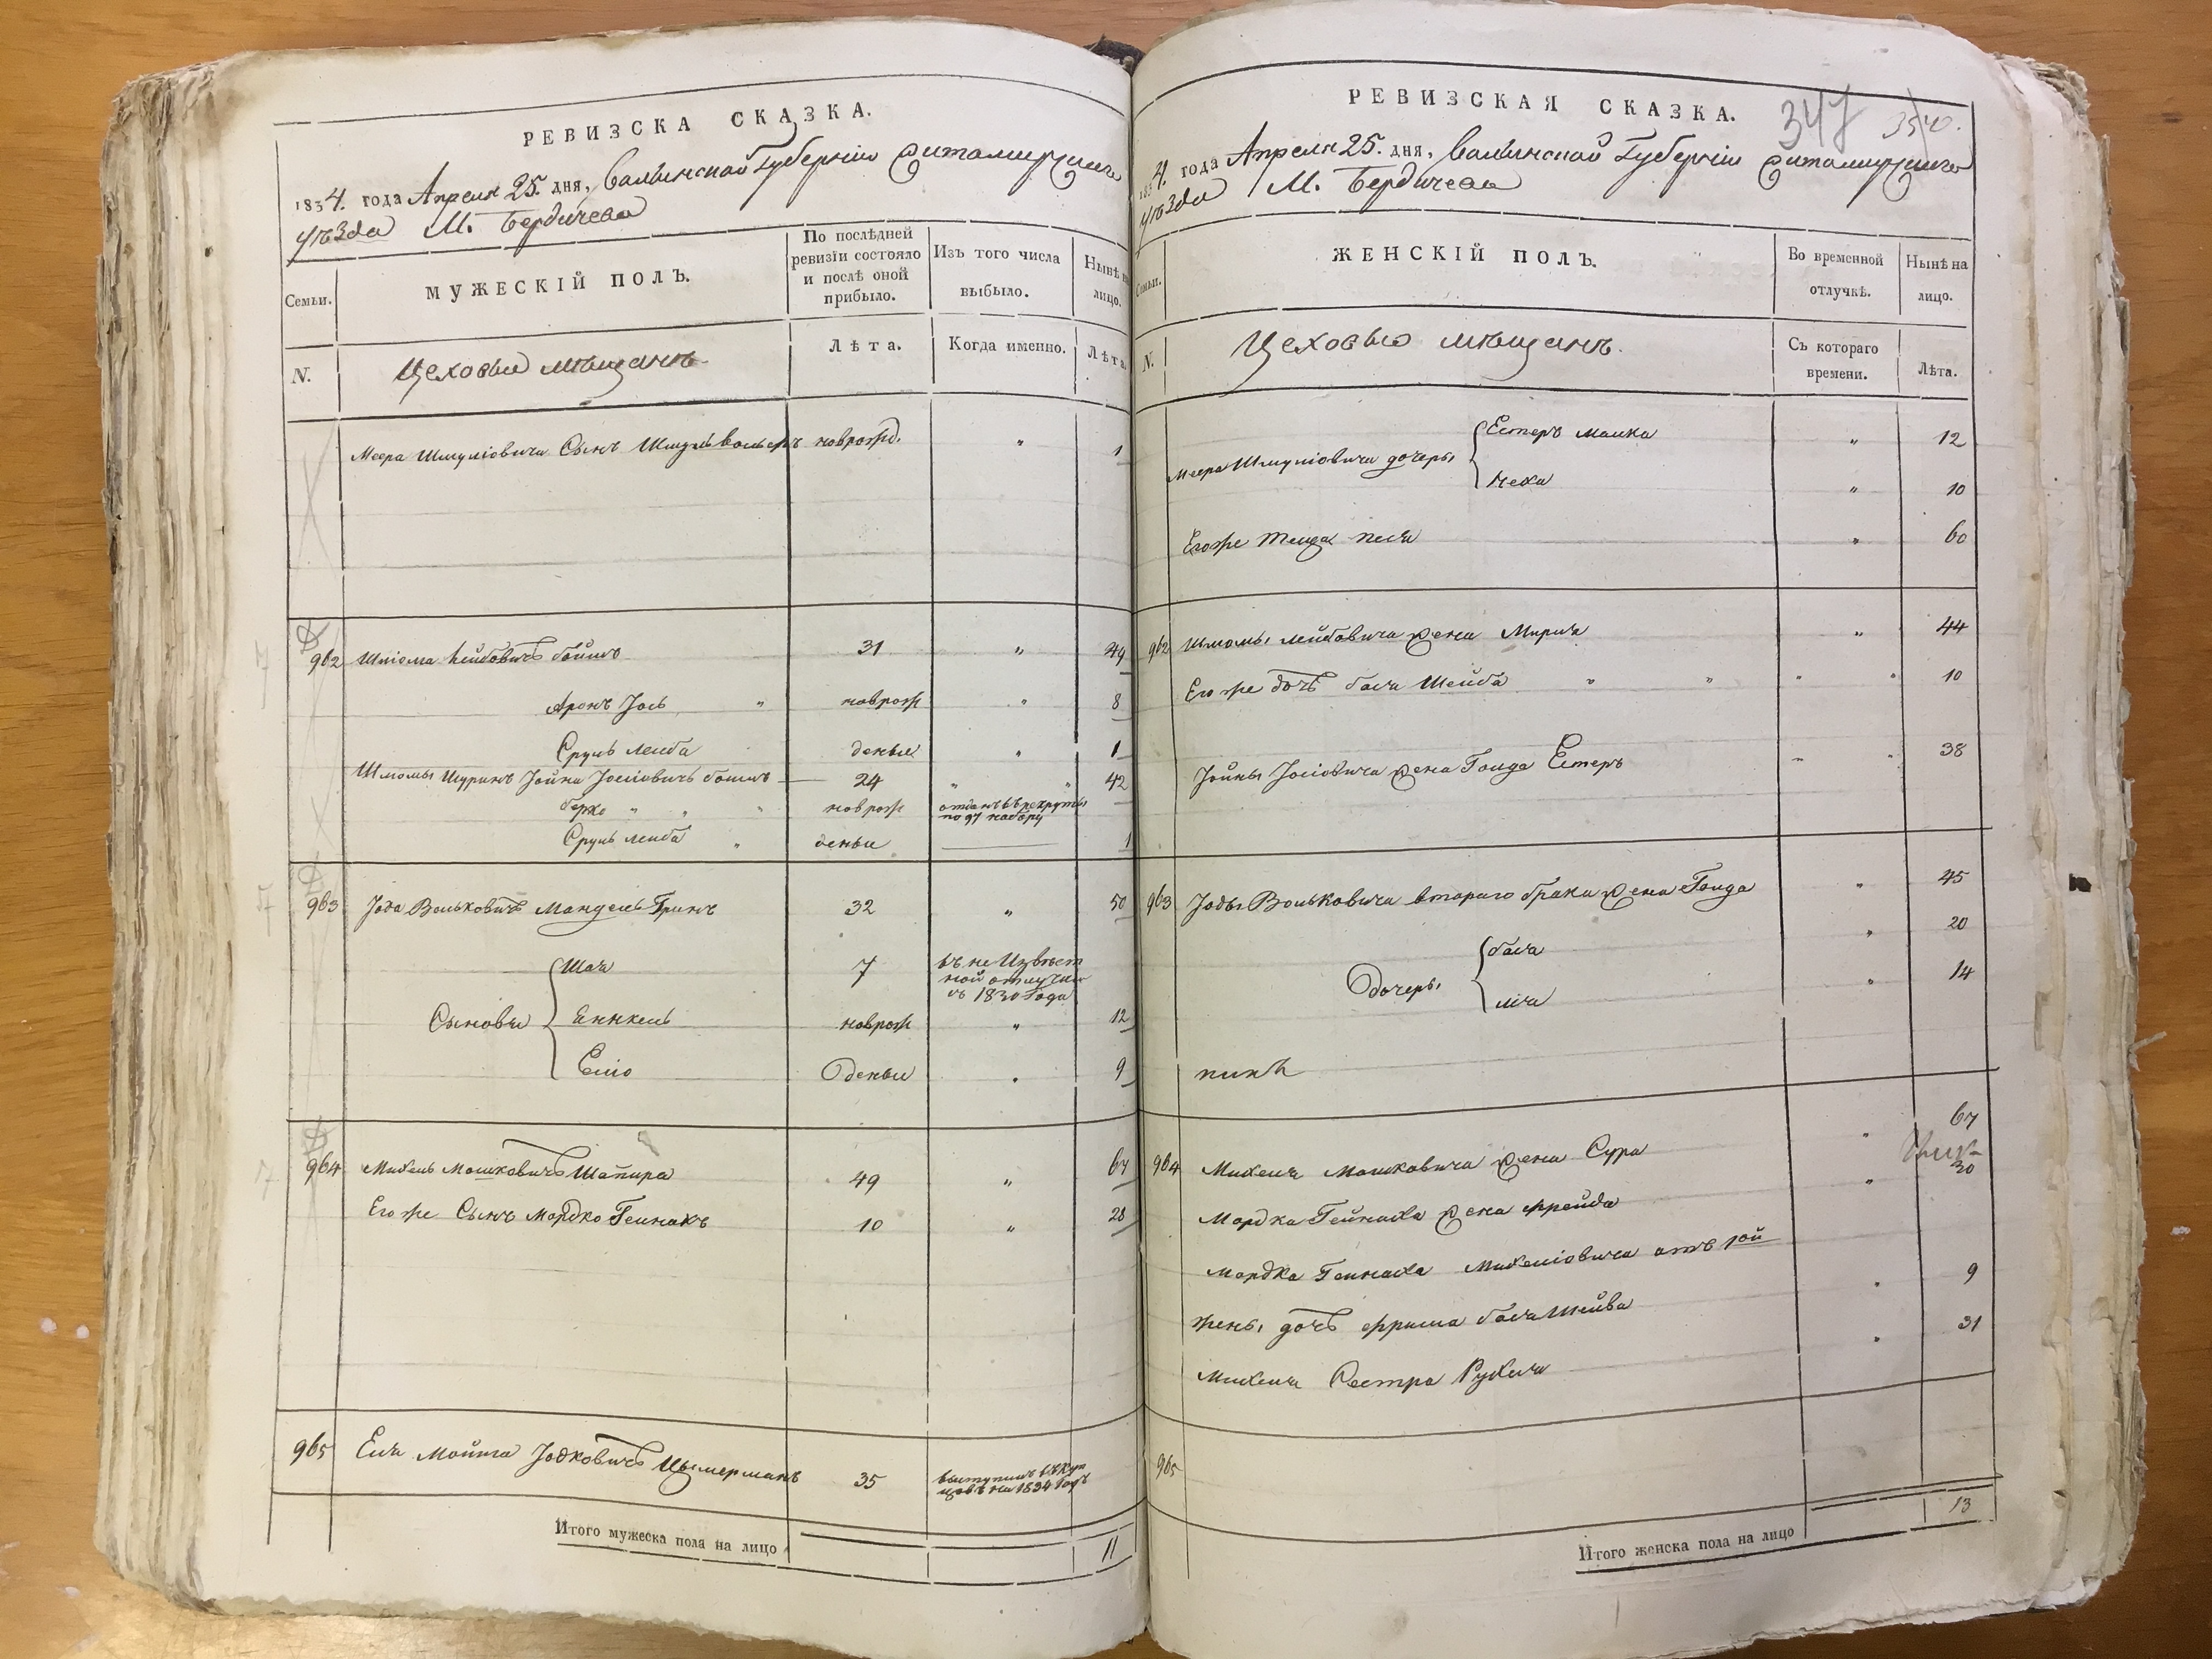 РЕВИЗСКА СКАЗКА.
1834. года Апреля 25. дня, Волынской Губернiи Житомирскаго
уѣзда М. Бердичева
Семьи.
МУЖЕСКIЙ ПОЛЪ.
По послѣдней
ревизiи состояло
и послѣ оной
прибыло.
Изъ того числа
выбыло.
Нынѣ на
лицо.
N.
Цеховые мѣщанъ
Лѣта.
Когда именно.
Лѣта.
Меера Шмулiовича Сынъ Шмуль новрожд. " 1
962 Шлiома Лейбовичъ 31 " 49
Аронъ Iось " новрож " 8
Сруль Леиба деньи " 1
Шломы Шуринъ Iойна Iосiовичъ 24 " " 42
берко " " " новрож отданъ въ рекруты
по 97 набору
Сруль леиба " деньи 1
963 Iода Вольковичъ Мандель Гринъ 32 " 50
Шая 7 въ не Извѣст
ной отлучки
съ 1830 Года
Сыновья Еннкель новрож " 12
Елiо Оденьи " 9
964 Михель Мошковичъ Шапира 49 " 67
Его же Сынъ Мордко Геинахъ 10 " 28
965 Еля Мойша Iодковичъ Цымерманъ 35 выступилъ въ Куп
цовъ на 1834 Годъ
Итого мужеска пола на лицо 11
РЕВИЗСКАЯ СКАЗКА. 347
1834. года Апреля 25. дня, Волынской Губернiи Житомирскаго
уѣзда М. Бердичева
Семьи.
ЖЕНСКIЙ ПОЛЪ.
Во временной
отлучкѣ.
Нынѣ на
лицо.
N.
Цеховые мѣщанъ.
Съ котораго
времени.
Лѣта.
Меера Шмулiовича дочеры Естеръ Малка " 12
Чеха " 10
Егоже Теща песя " 60
962 Шломы Лейбовича жена Мирля " 44
Его же дочъ бася Шейба " " " " 10
Iойны Iосiовича жена Голда Естеръ " " 38
963 Iоды Вольковича втораго брака жена Голда " 45
дочеры бася " 20
лiя " 14
964 Михеля Мошковича жена Сура " 67
Мордка Гейнаха жена фрейда " 30
Мордка Геинаха Михелiовича отъ 1ой
жены дочъ бася Шейва " 9
Михеля Сестра Рухля " 31
965
Итого женска пола на лицо 13